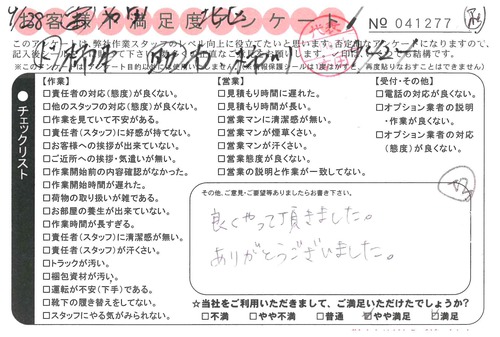 お客様満足度アンケート
No 041277
このアンケートは、弊社作業スタッフのレベル向上に役立てたいと思います。否定的なアンケートになりますので、
チェックリスト
【作業】
□責任者の対応(態度)が良くない。
□他のスタッフの対応(態度)が良くない。
□作業を見ていて不安がある。
□責任者(スタッフ)に好感が持てない。
□お客様への挨拶が出来ていない。
□ご近所への挨拶・気遣いが無い。
□作業開始前の内容確認がなかった。
□作業開始時間が遅れた。
□荷物の取り扱いが雑である。
□お部屋の養生が出来ていない。
□作業時間が長すぎる。
□責任者(スタッフ)に清潔感が無い。
□責任者(スタッフ)が汗くさい。
□トラックが汚い。
□梱包資材が汚い。
□運転が不安(下手)である。
□靴下の履き替えをしてない。
□スタッフにやる気がみられない。
【営業】
□見積もり時間に遅れた。
□見積もり時間が長い。
□営業マンに清潔感が無い。
□営業マンが煙草くさい。
□営業マンが汗くさい。
□営業態度が良くない。
□営業の説明と作業が一致してない。
【受付・その他】
□電話の対応が良くない。
□オプション業者の説明
・作業が良くない。
□オプション業者の対応
(態度)が良くない。
その他、ご意見・ご要望等ありましたらお書き下さい。
良くやって頂きました。
ありがとうございました。
☆当社をご利用いただきまして、ご満足いただけたでしょうか?
□不満 □やや不満 □普通 □やや満足 □満足